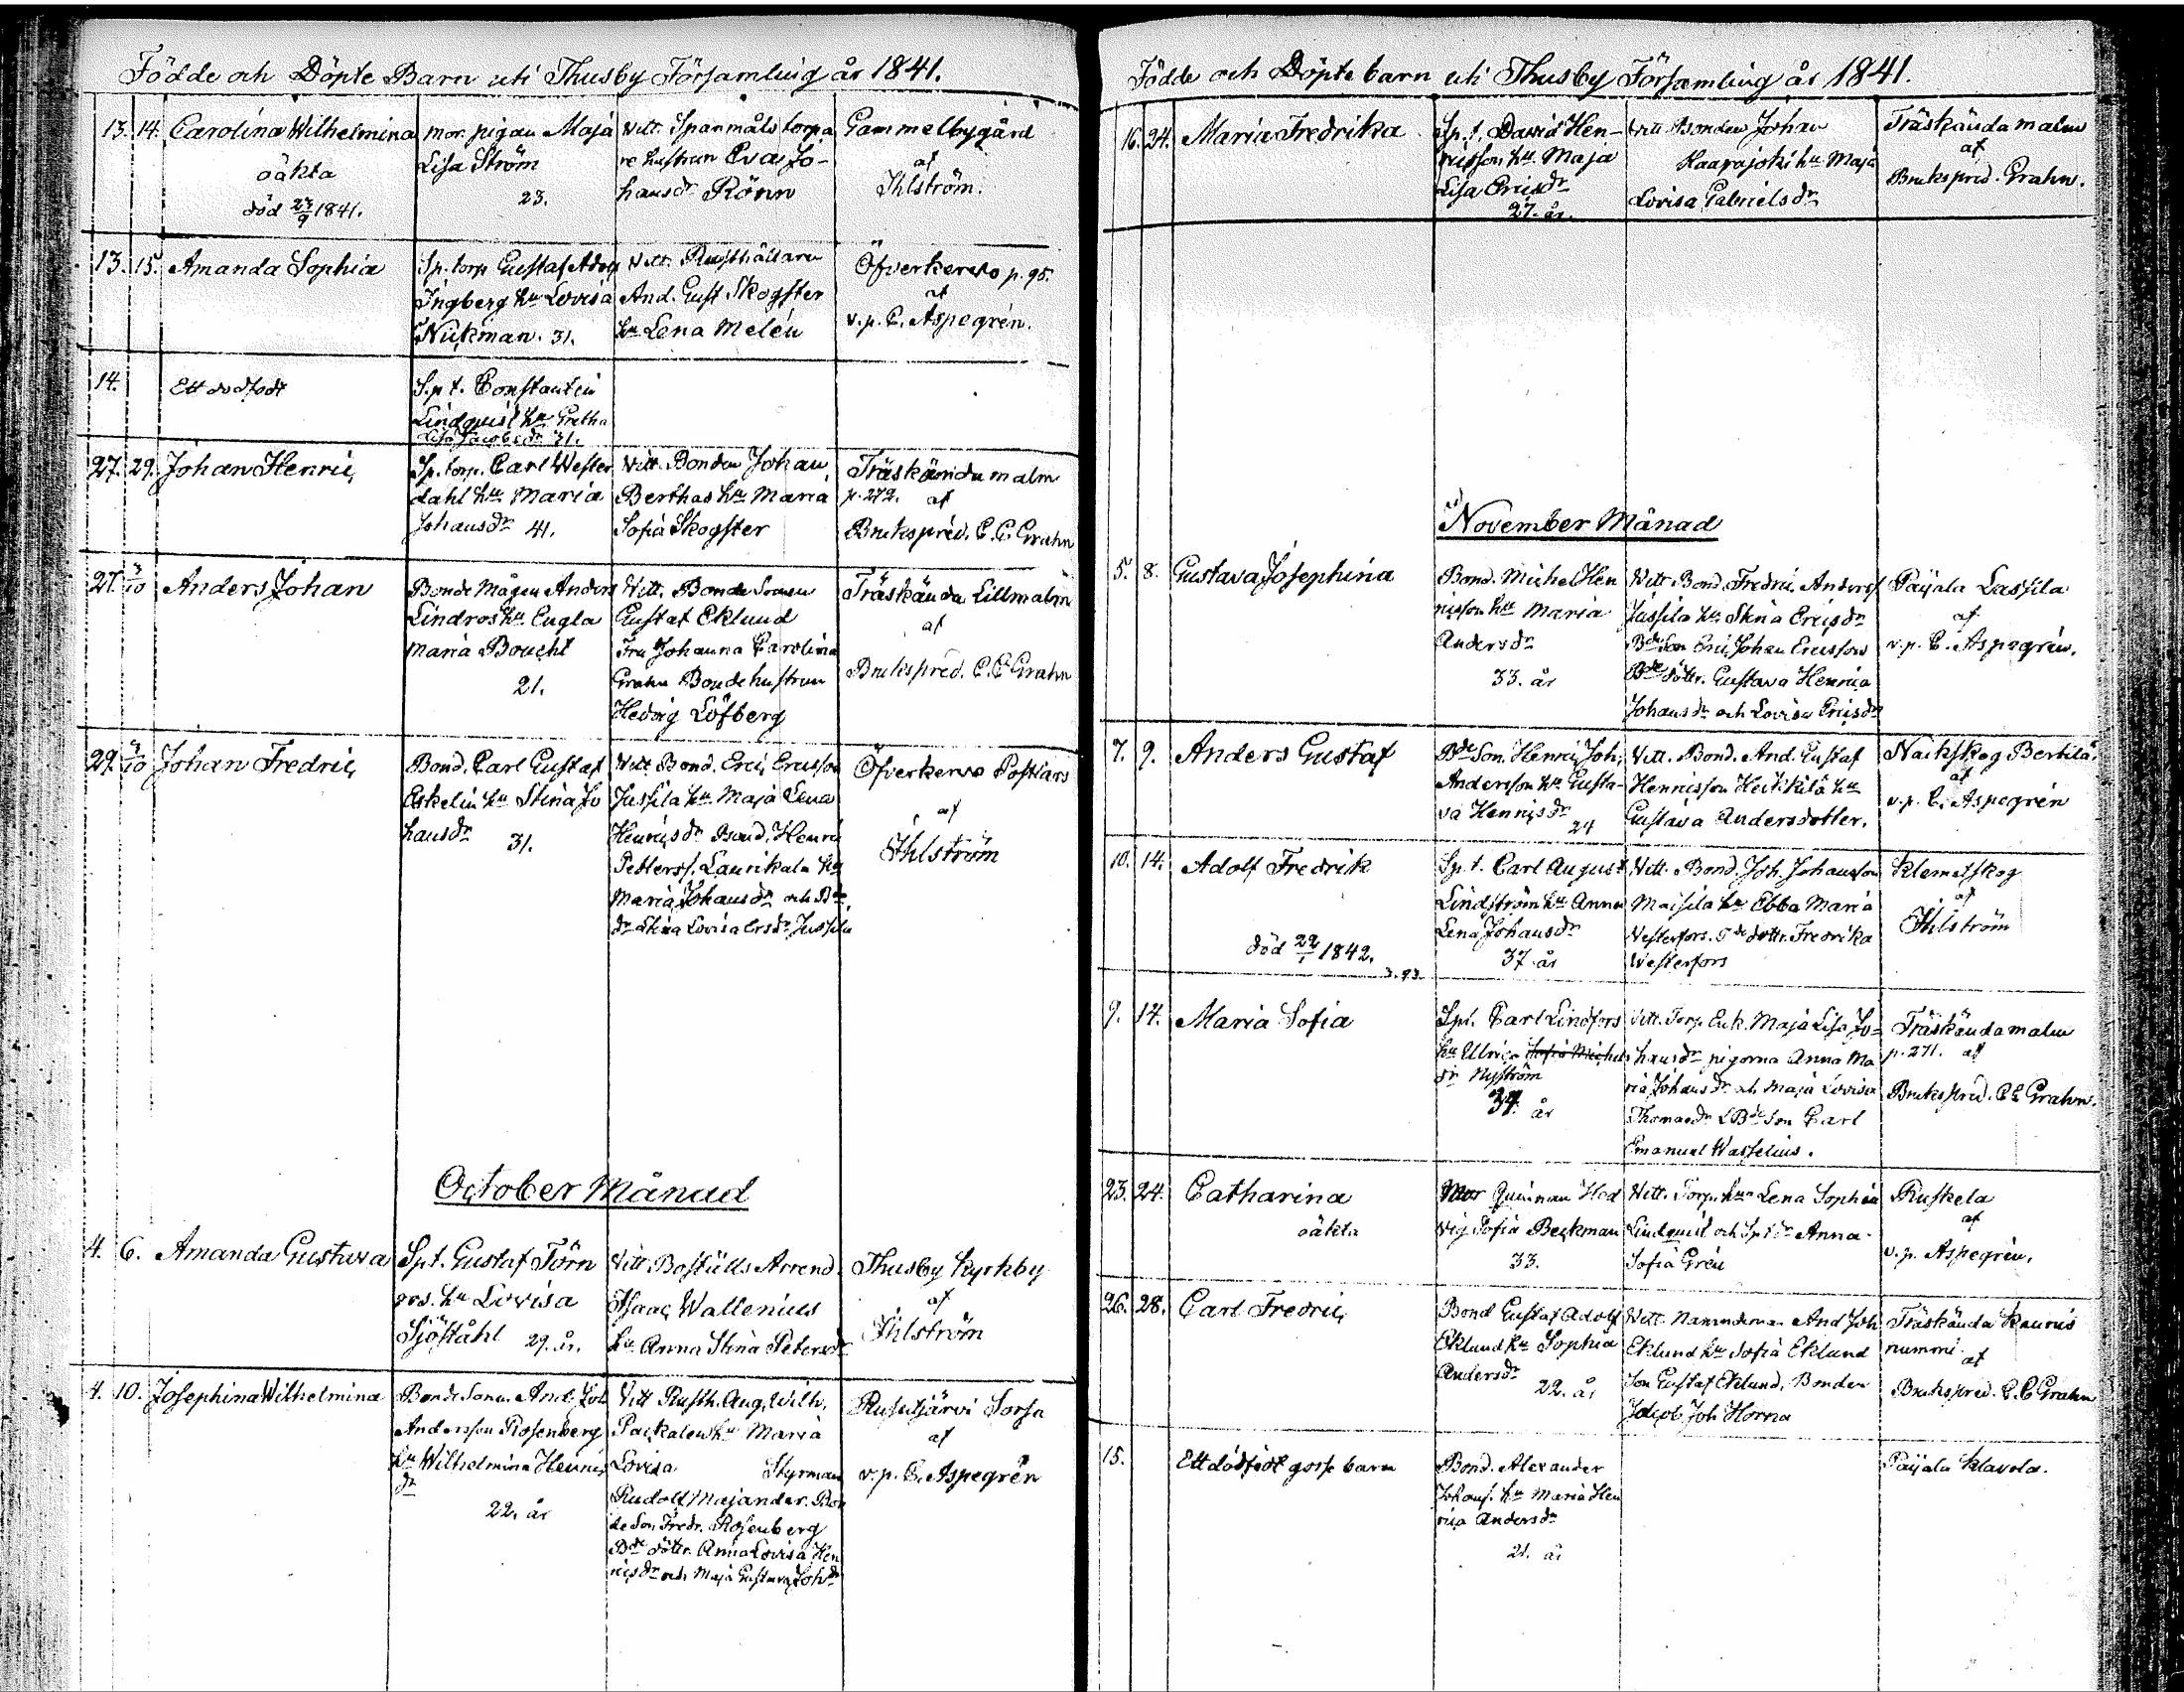 Födde och Döpte Barn uti Thusby Församling år 1841.
13. 14. Carolina Wilhelmina
oäkta
död 23/9 1841.
mor. pigan Maja
Lisa Ström
23.
Vitt. Spanmåls torpa
re hustrun Eva Jo-
hansdr Rönn
Gammelbygård
af
Ihlström.
13. 15. Amanda Sophia
Sp. torp Gustaf Adog
Ingberg hu Lovisa
Nickman. 31.
Vitt. Rusthållaren
And. Gust Skogster
hu Lena Melén
Öfverkervo p. 95.
af
v.p. C. Aspegrén.
14. Ett dödfödt
Sp t. Constantin
Lindquist hu Gretha
Lisa Jacobsdr 31.
27. 29. Johan Henric
Sp. torp. Carl Wester
dahl hu Maria
Johansdr 41.
Vitt. Bonden Johan
Berthas hu Maria
Sofia Skogster
Träskända malm
p. 272. af
Brukspred. C. C. Grahn
27. 3/10 Anders Johan
Bonde Mågen Anders
Lindros hu Eugla
Maria Boucht
21.
Vitt. Bonde Sonen
Gustaf Eklund
Fru Johanna Carolina
Grahn Bondehustrun
Hedvig Löfberg
Träskända Lillmalm
af
Brukspred. C. C Grahn
29. 3/10 Johan Fredric
Bond. Carl Gustaf
Eskelin hu Stina Jo
hansdr 31.
Vitt. Bond. Eric Ericsson
Jussila hu Maja Lena
Henricsdr Bond. Henric
Petterss. Laurikala hu
Maria Johansdr och Bde
dr Stina Lovisa Ersdr Jussila
Öfverkervo Postlars
af
Ihlström
October Månad
4. 6. Amanda Gustava
Spt. Gustaf Törn
ros. hu Lovisa
Sjöståhl 29. år.
Vitt Boställs Arrend.
Isaac Wallenius
hu Anna Stina Petersdr
Thusby Kyrkby
af
Ihlström
4. 10. Josephina Wilhelmina
Bonde Sonen. And. Joh
Andersson Rosenberg
hu Wilhelmina Henric
dr
22. år
Vitt Rusth. Aug. Wilh.
Packalen hu Maria
Lovisa Styrman
Rudolf Majander. Bon
de Son. Fredr. Rosenberg
Bde dötter. Anna Lovisa Hen
ricsdr och Maja Gustava Johdr
Rusutjärvi Sorsa
af
v.p. C. Aspegrén
Födde och Döpte barn uti Thusby Församling år 1841.
16. 24. Maria Fredrika
Sp. t. David Hen-
ricsson hu. Maja
Lisa Ericsdr
27. år.
Vitt Bonden Johan
Haarajoki hu Maja
Lovisa Gabrielsdr
Träskända malm
af
Brukspred. Grahn.
November Månad
5. 8. Gustava Josephina
Bond. Michel Hen
ricsson hu Maria
Andersdr
33. år
Vitt Bond. Fredric Anderss
Jussila hu Stina Ericsdr
Bde Son Eric Johan Ericsson
Bde dötter. Gustava Henrica
Johansdr och Lovisa Ericsdr
Paijala Lassila
af
v.p. C. Aspegrén.
7. 9. Anders Gustaf
Bde Son. Henric Joh.
Andersson hu Gusta-
va Henricsdr
24
Vitt. Bond. And. Gustaf
Henricsson Heikkilä hu
Gustava Andersdotter.
Nackskog Bertila.
af
v.p. C. Aspegrén
10. 14. Adolf Fredrik
död 22/1 1842.
3.93.
Sp. t. Carl August
Lindström hu Anna
Lena Johansdr
37 år
Vitt. Bond. Joh. Johansson
Maisila hu Ebba Maria
Westerfors. Bde dottr. Fredrika
Westerfors
Klemetskog
af
Ihlström
9. 14. Maria Sofia
Spt. Carl Lindfors
hu Ellrica Sofia Michels
dr Nyström
34. år
Vitt. Torp. Enk. Maja Lisa Jo-
hansdr pigorna Anna Ma
ria Johansdr och Maja Lovisa
Thomasdr & Bde Son Carl
Emanuel Wasselius.
Träskända malm
p. 271. af
Brukspred. C C Grahn.
23. 24. Catharina
oäkta
Mor Quinnan Hed
vig Sofia Beckman
33.
Vitt. Torp. hu Lena Sophia
Lindquist och Sptdr Anna
Sofia Grén
Ruskela
af
v.p. Aspegrén.
26. 28. Carl Fredric
Bond Gustaf Adolf
Eklund hu Sophia
Andersdr
22. år
Vitt. Nämndeman And Joh
Eklund hu Sofia Eklund
Son Gustaf Eklund, Bonden
Jacob Joh Horna
Träskända Kauris
nummi
af
Brukspred. C. C Grahn
15. Ett dödfödt gosse barn
Bond. Alexander
Johans. hu Maria Hen
rica Andersdr
21. år
Paijala Klavola.